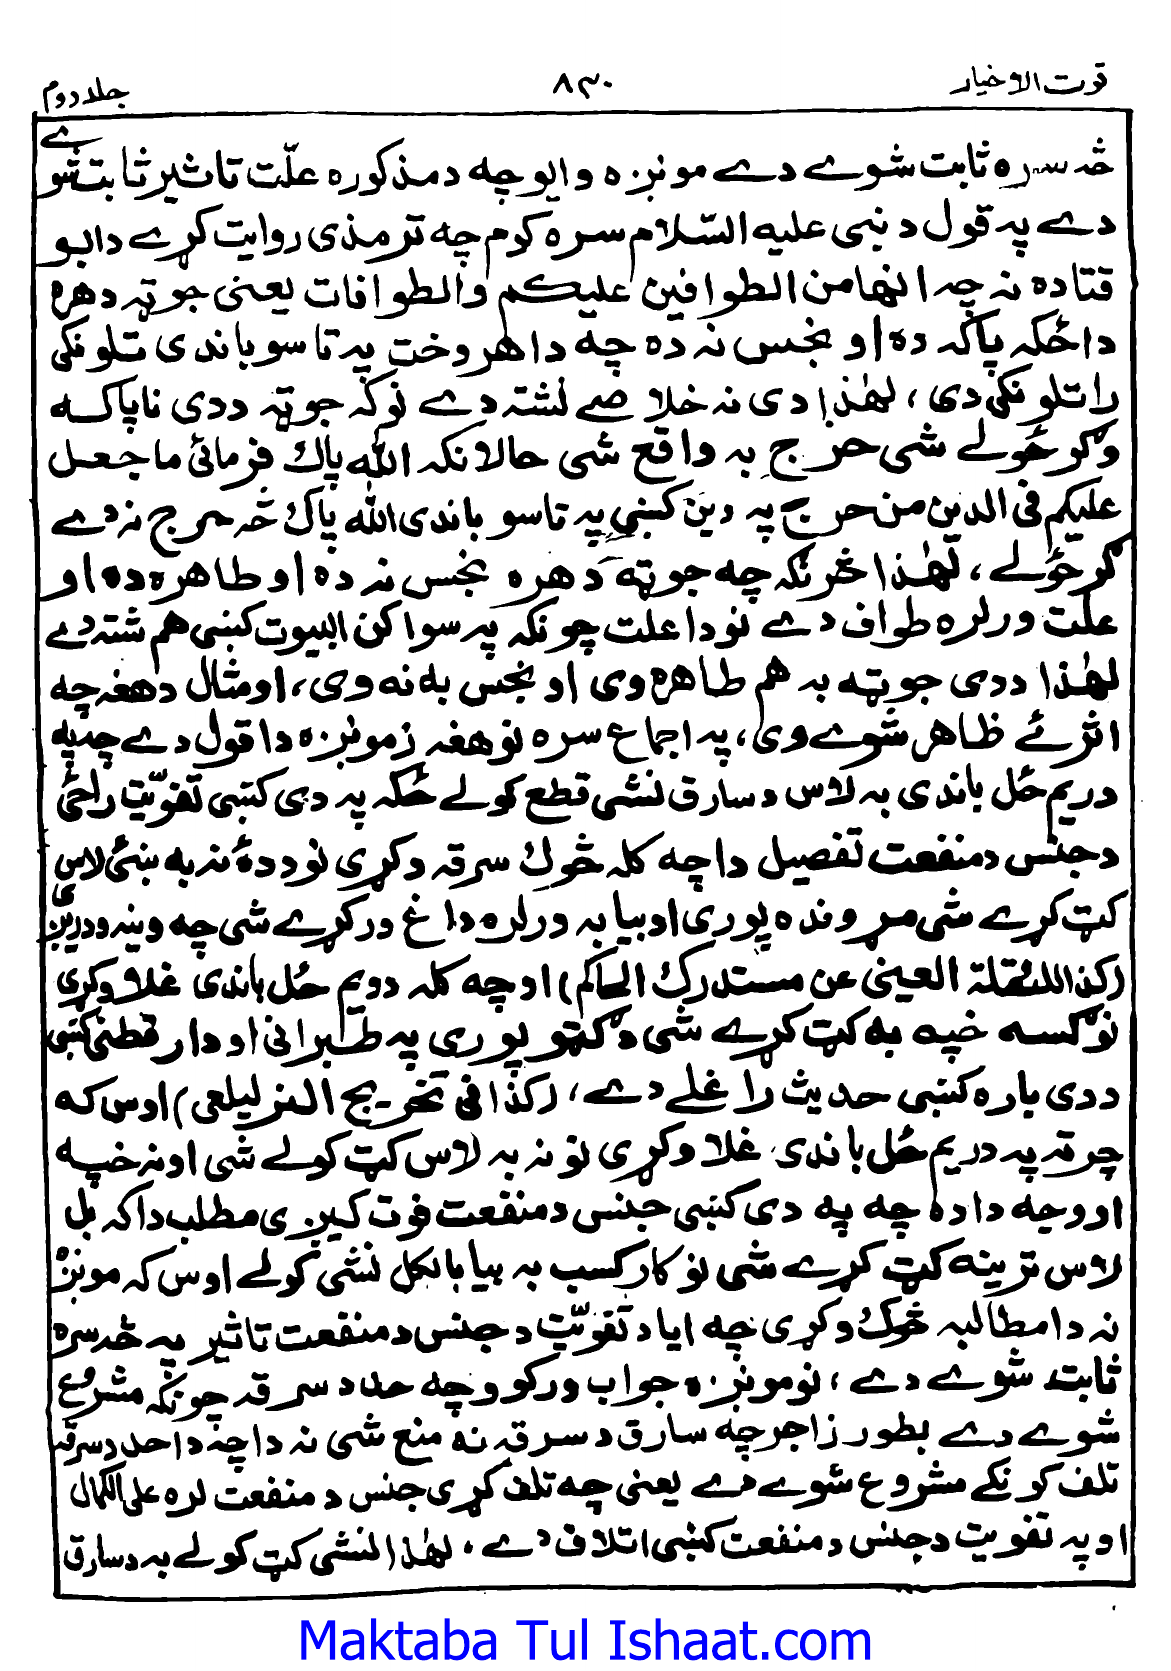 قوت الاخیار ۸۳۰ جلد دوم
څه سره ثابت شوے دے مونږه وایو چه د مذکوره علّت تاثیر ثابت شوے
دے په قول د نبی علیه السّلام سره کوم چه ترمذی روایت کړے د ابو
قتاده نه چه انها من الطوافین علیکم والطوافات یعنی جوټه د هره
دا ځکه پاکه ده او نجس نه ده چه دا هر وخت په تاسو باندی تلونکی
راتلونکی دی، لهٰذا دی نه خلاصے نشته دے نو که جوټه د دی ناپاکه
وګرځولے شی حرج به واقع شی حالانکه الله پاک فرمائی ما جعل
علیکم فی الدین من حرج په دین کښی په تاسو باندی الله پاک څه حرج نه دے
ګرځولے، لهٰذا څرنګه چه جوټه د هره نجس نه ده او طاهره ده او
علّت ورلره طواف دے نو دا علت چونکه په سواکن البیوت کښی هم شته دے
لهٰذا د دی جوټه به هم طاهره وی او نجس به نه وی، او مثال د هغه چه
اثر ئے ظاهر شوے وی، په اجماع سره نو هغه زمونږه دا قول دے چه په
دریم ځل باندی به لاس د سارق نشی قطع کولے ځکه په دی کښی تفویّت راځی
د جنس د منفعت تفصیل دا چه کله څوک سرقه وکړی نو د دهٔ نه به ښئ لاس
کټ کړے شی مړوندہ پوری او بیا به ورلره داغ ورکړے شی چه وینه ودریږی
(کذا نقلة العینی عن مستدرک الحاکم) او چه کله دویم ځل باندی غلا وکړی
نو ګسه خپه به کټ کړے شی د ګټو پوری په طبرانی او دار قطنی کښی
د دی باره کښی حدیث راغلے دے، (کذا فی تخریج الزیلعی) اوس که
چرته په دریم ځل باندی غلا وکړی نو نه به لاس کټ کولے شی او نه خپه
او وجه دا ده چه په دی کښی جنس د منفعت فوت کیږی مطلب دا که بل
لاس ترینه کټ کړے شی نو کار کسب به بیا بالکل نشی کولے اوس که مونږه
نه دا مطالبه څوک وکړی چه ایا د تفویّت د جنس د منفعت تاثیر په څه سره
ثابت شوے دے، نو مونږه جواب ورکوو چه حد د سرقه چونکه مشروع
شوے دے بطور زاجر چه سارق د سرقه نه منع شی نه دا چه دا حد د سرقه
تلف کونکے مشروع شوے دے یعنی چه تلف کړی جنس د منفعت لره علی الکمال
او په تفویت د جنس د منفعت کښی اتلاف دے، لهٰذا نشی کټ کولے به د سارق
Maktaba Tul Ishaat.com